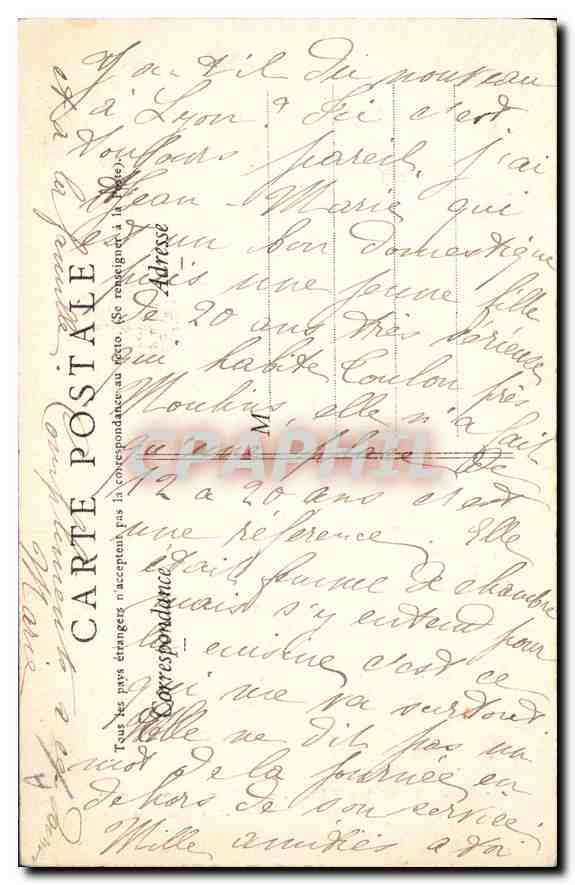 Y a-t-il du nouveau
à Lyon ? Ici c'est
toujours pareil, j'ai
Jean-Marie qui
est un bon domestique
puis une jeune fille
de 20 ans très sérieuse
qui habite Coulon près
Moulins, elle n'a fait
qu'une place de
12 a 20 ans c'est
une référence. Elle
était femme de chambre
mais s'y entend pour
la cuisine c'est ce
qui me va surtout
Elle ne dit pas un
mot de la journée en
dehors de son service
Mille amitiés a toi
et a la famille. Compliments a
Marie
CARTE POSTALE
Tous les pays étrangers n'acceptent pas la correspondance au recto. (Se renseigner à la Poste).
Correspondance
Adresse
M
CPAPHIL